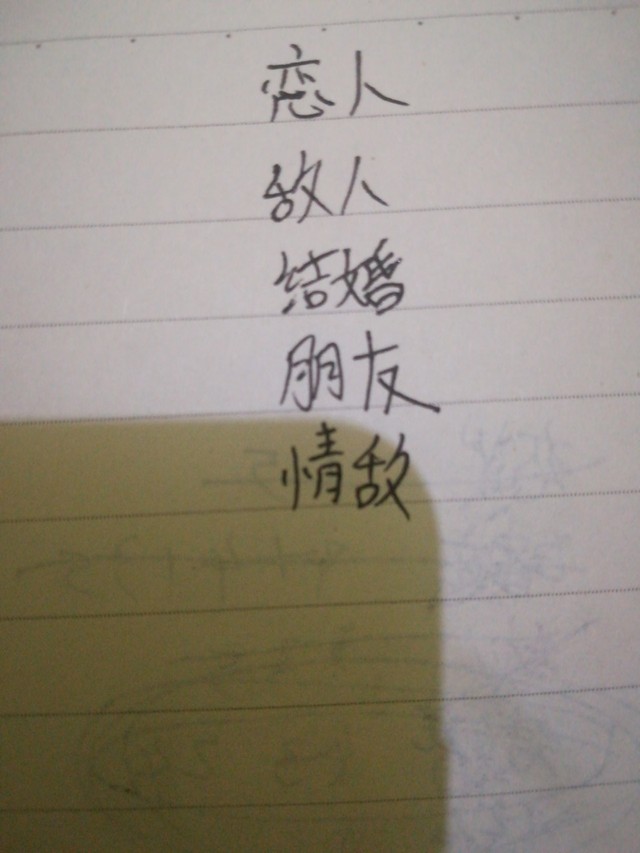 恋人
敌人
结婚
朋友
情敌